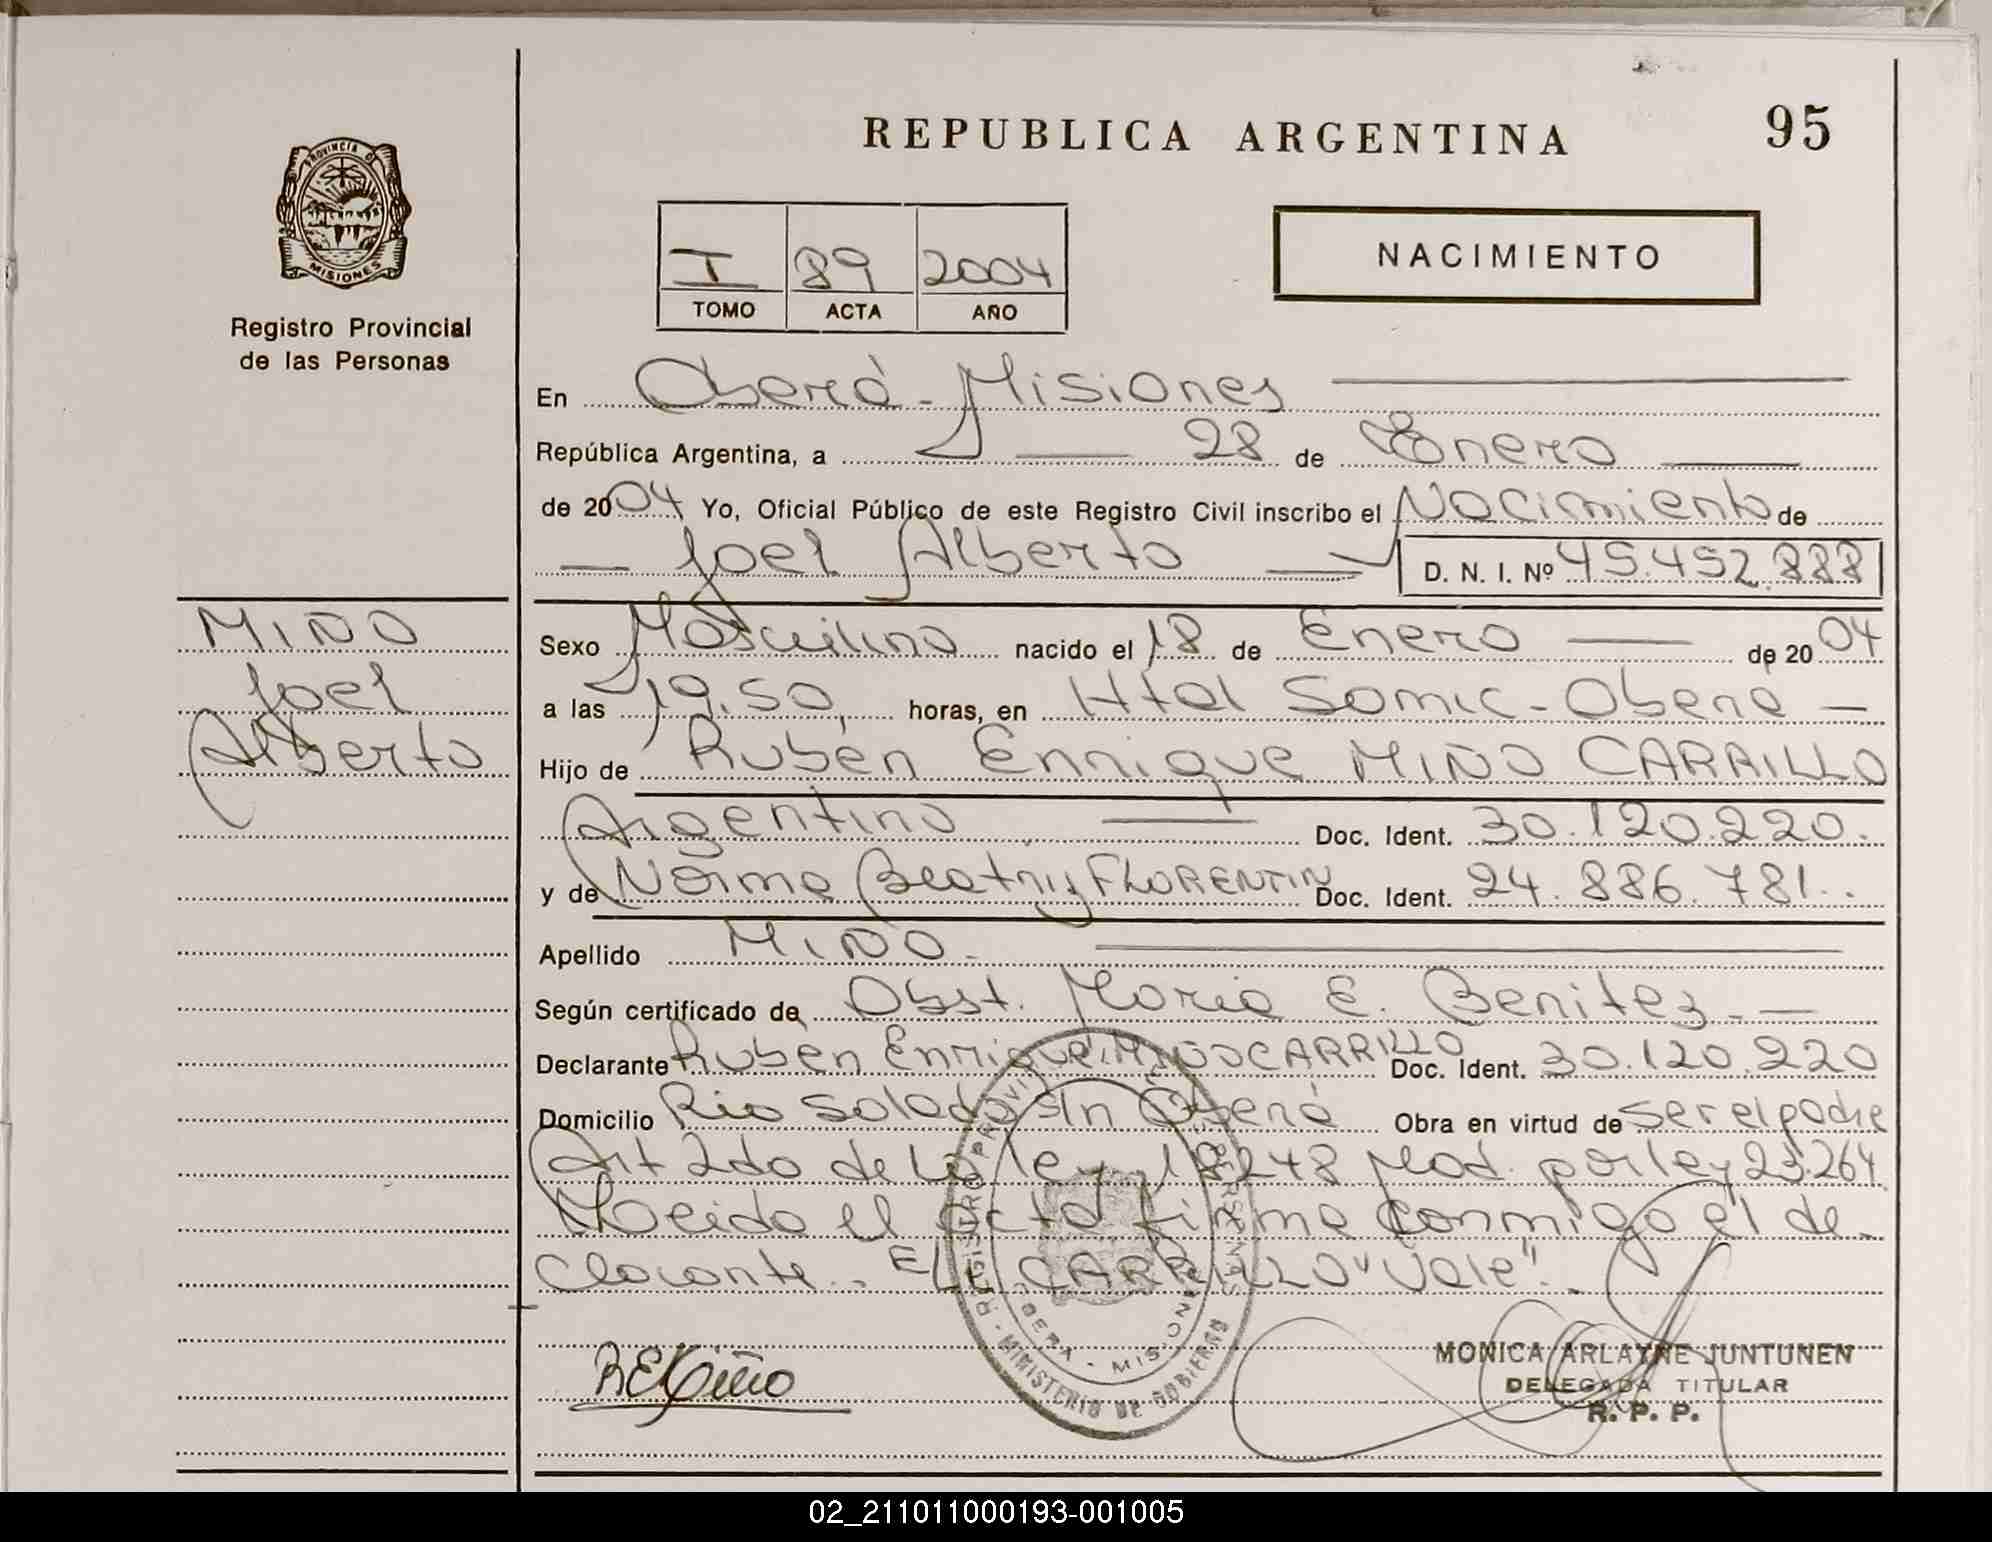 REPUBLICA ARGENTINA
95
PROVINCIA DE
MISIONES
Registro Provincial
de las Personas
I 89 2004
TOMO ACTA AÑO
NACIMIENTO
En Oberá - Misiones
República Argentina, a 28 de Enero
de 2004 Yo, Oficial Público de este Registro Civil inscribo el Nacimiento de
Joel Alberto D. N. I. Nº 45.452.888
MIÑO
Joel
Alberto
Sexo Masculino nacido el 18 de Enero de 2004
a las 19,50, horas, en Htal Samic - Oberá -
Hijo de Rubén Enrique MIÑO CARRILLO
Argentino Doc. Ident. 30.120.220.
y de Norma Beatriz FLORENTIN Doc. Ident. 24.886.781..
Apellido MIÑO.
Según certificado de Obst. Maria E. Benitez. -
Declarante Ruben Enrique MIÑO CARRILLO Doc. Ident. 30.120.220
Domicilio Rio Salado s/n Oberá Obra en virtud de ser el padre
Art 2do de la ley 18248 Mod. por ley 23.264
leida el acta firma conmigo el de-
clarante.. EL: CARRILLO "Vale".
REMiño
REGISTRO PROVINCIAL DE LAS PERSONAS - MINISTERIO DE GOBIERNO
OBERA - MIS.
MONICA ARLAYNE JUNTUNEN
DELEGADA TITULAR
R. P. P.
02_211011000193-001005